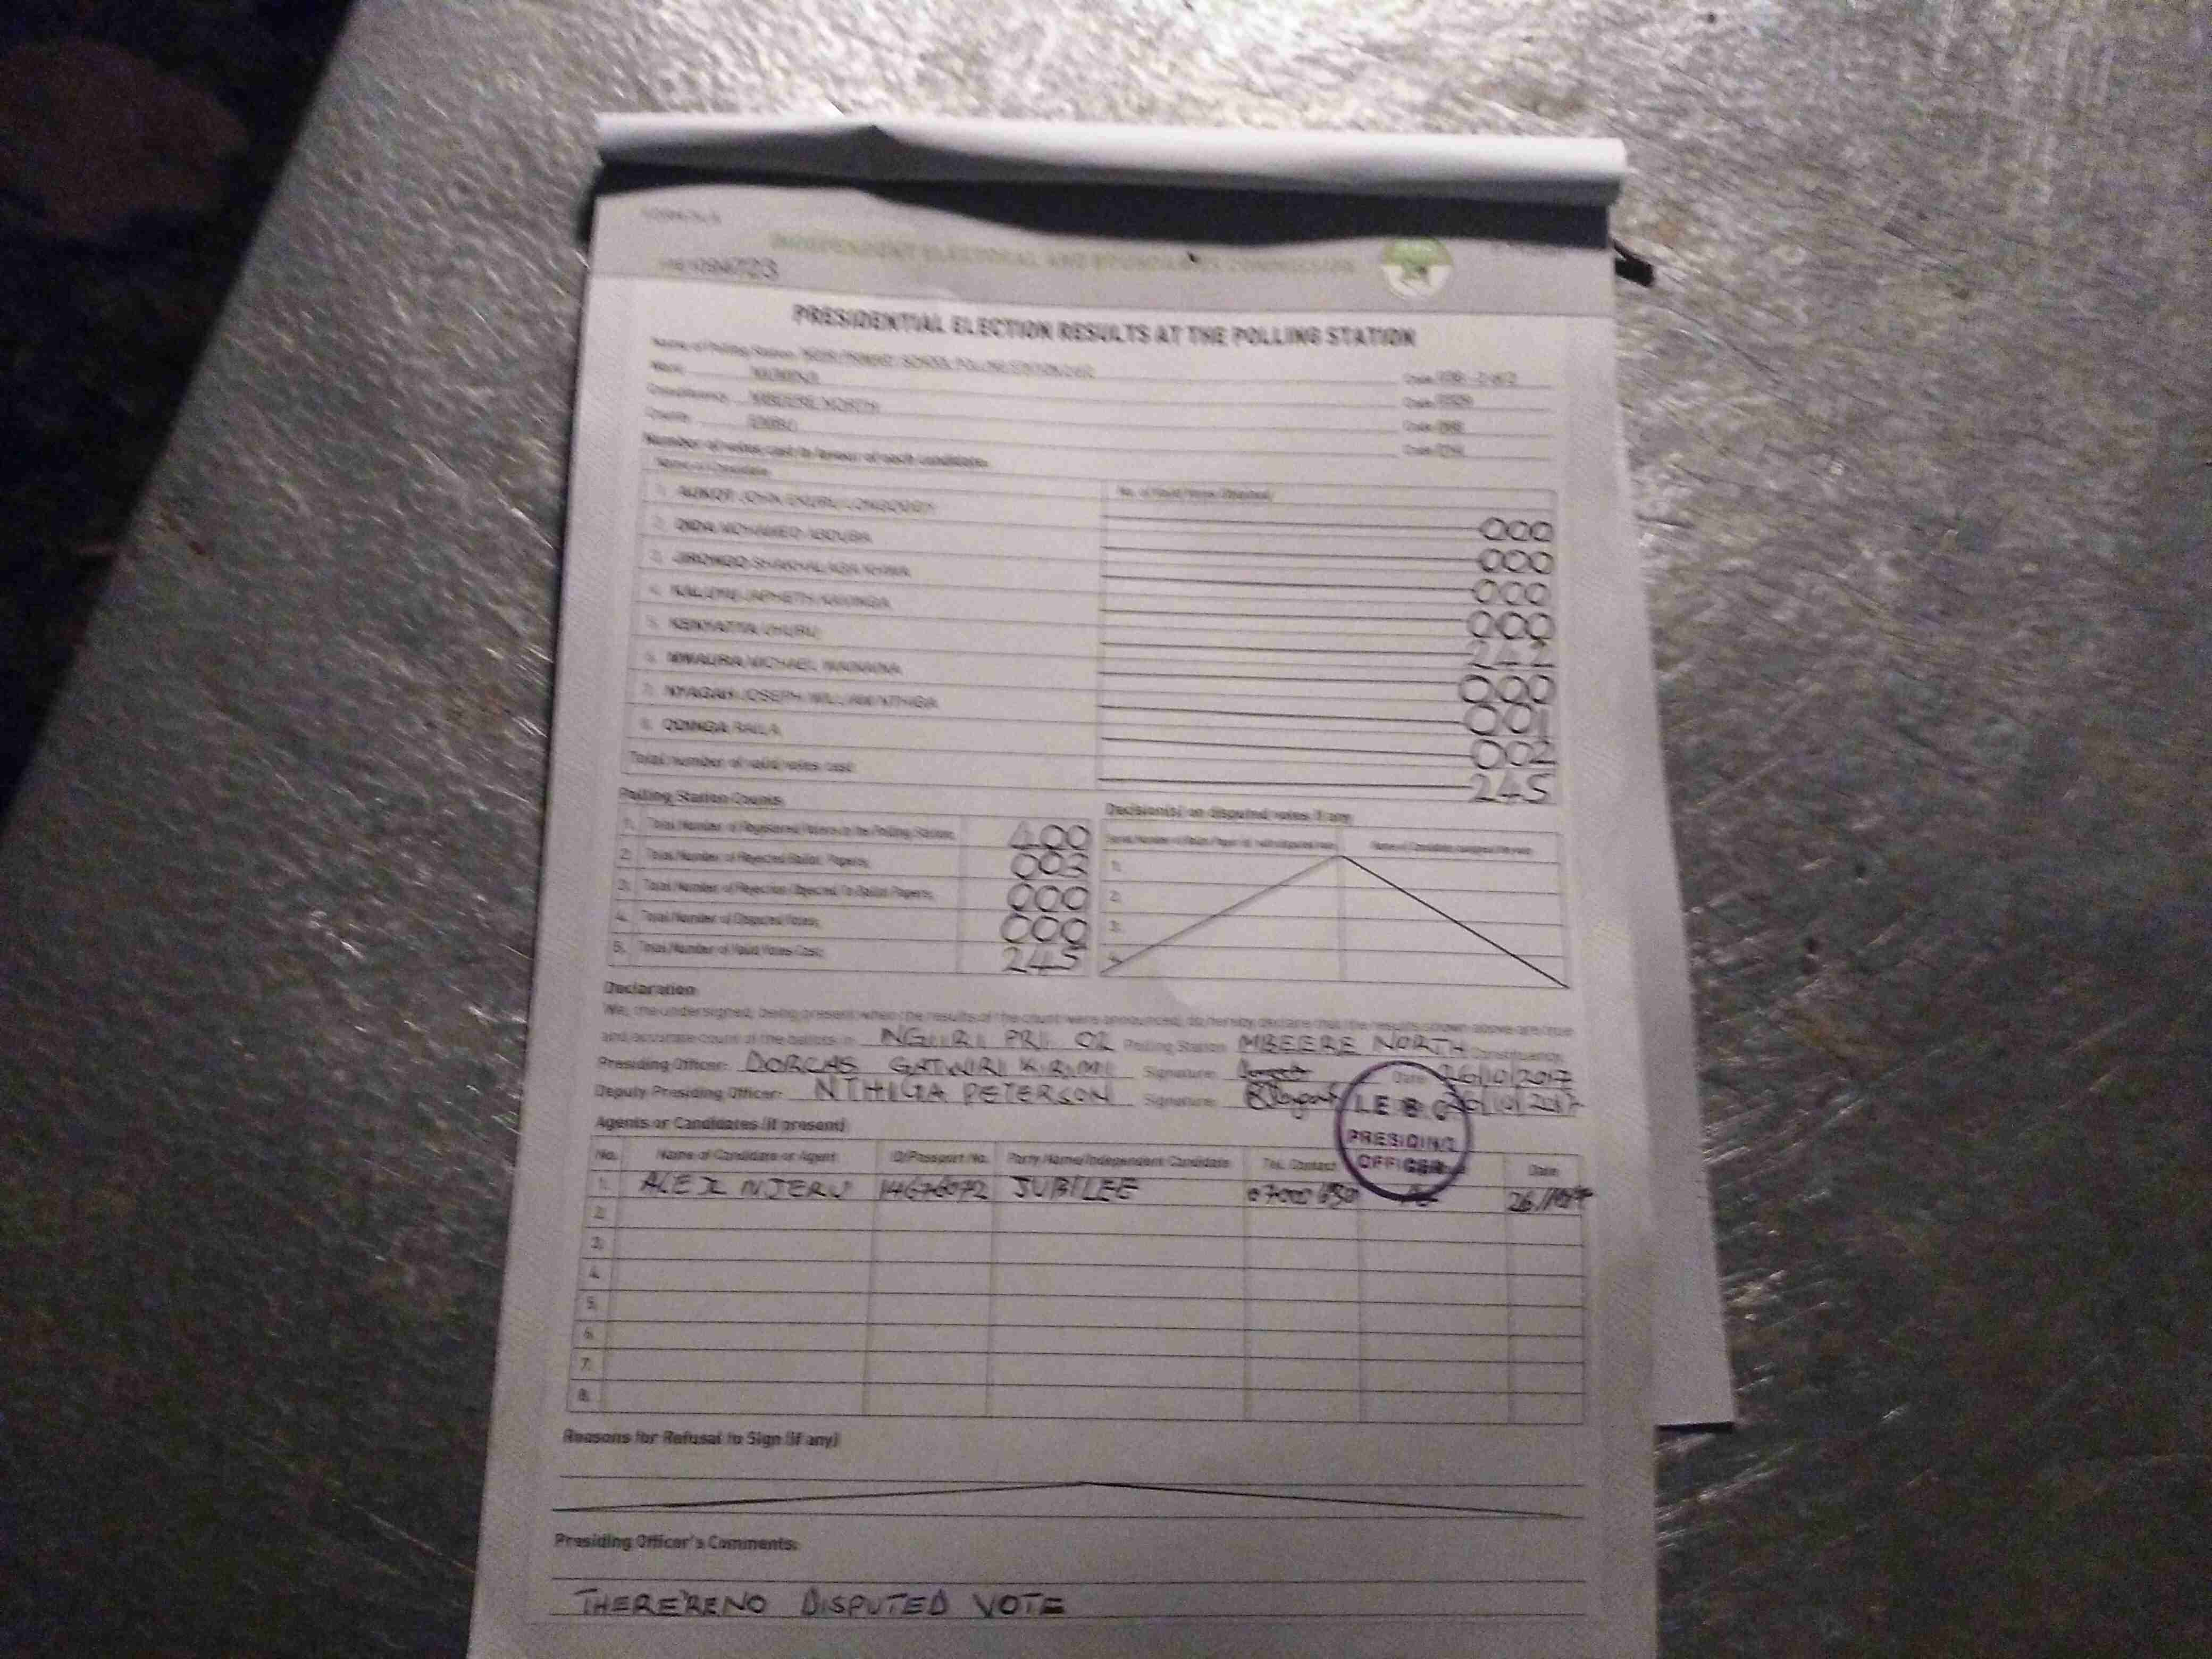 INDEPENDENT ELECTORAL AND BOUNDARIES COMMISSION
PRESIDENTIAL ELECTION RESULTS AT THE POLLING STATION
Name of Polling Station
Ward
Constituency MBEERE NORTH
County EMBU
Number of votes cast in favour of each candidate
Name of Candidate No. of Valid Votes Obtained
1. AUKOT JOHN EKURU LONGOGGY 000
2. DIDA MOHAMED ABDUBA 000
3. JIRONGO SHAKHALAGA KHWA 000
4. KALUYU JAPHETH KAVINGA 000
5. KENYATTA UHURU 242
6. MWAURA MICHAEL WAINAINA 000
7. NYAGAH JOSEPH WILLIAM NTHIGA 001
8. ODINGA RAILA 002
Total number of valid votes cast 245
Polling Station Counts
Decision(s) on disputed votes if any
1. Total Number of Registered Voters in the Polling Station 400
2. Total Number of Rejected Ballot Papers 003
3. Total Number of Rejection Objected To Ballot Papers 000
4. Total Number of Disputed Votes 000
5. Total Number of Valid Votes Cast 245
1.
2.
3.
4.
Declaration
We, the undersigned, being present when the results of the count were announced, do hereby declare that the results shown above are true
and accurate count of the ballots in NGIIRI PRI. 02 Polling Station MBEERE NORTH Constituency.
Presiding Officer: DORCAS GATWIRI KIRIMI Signature: Date: 26/10/2017
Deputy Presiding Officer: NTHIGA PETERSON Signature:
IEBC
PRESIDING
OFFICER
Agents or Candidates (if present)
No. Name of Candidate or Agent ID/Passport No. Party Name/Independent Candidate Tel. Contact Date
1. ALEX NJERU 14676072 JUBILEE
2.
3.
4.
5.
6.
7.
8.
Reasons for Refusal to Sign (if any)
Presiding Officer's Comments:
THERE'RE NO DISPUTED VOTE